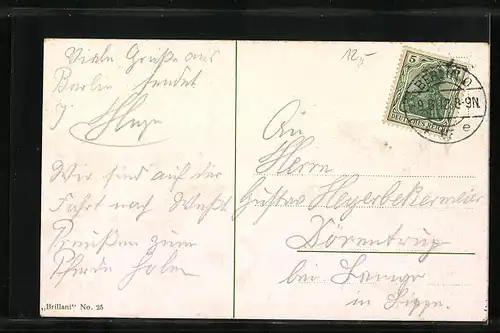 Viele Grüße aus
Berlin sendet
Wir sind auf der
Fahrt nach West
Preußen zum
Pferde holen
„Brillant“ No. 25
12,-
5
DEUTSCHES REICH
BERLIN
8-9N
e
An
Herrn
Gustav Meyerbekermeier
Dörentrup
bei Lemgo
in Lippe.